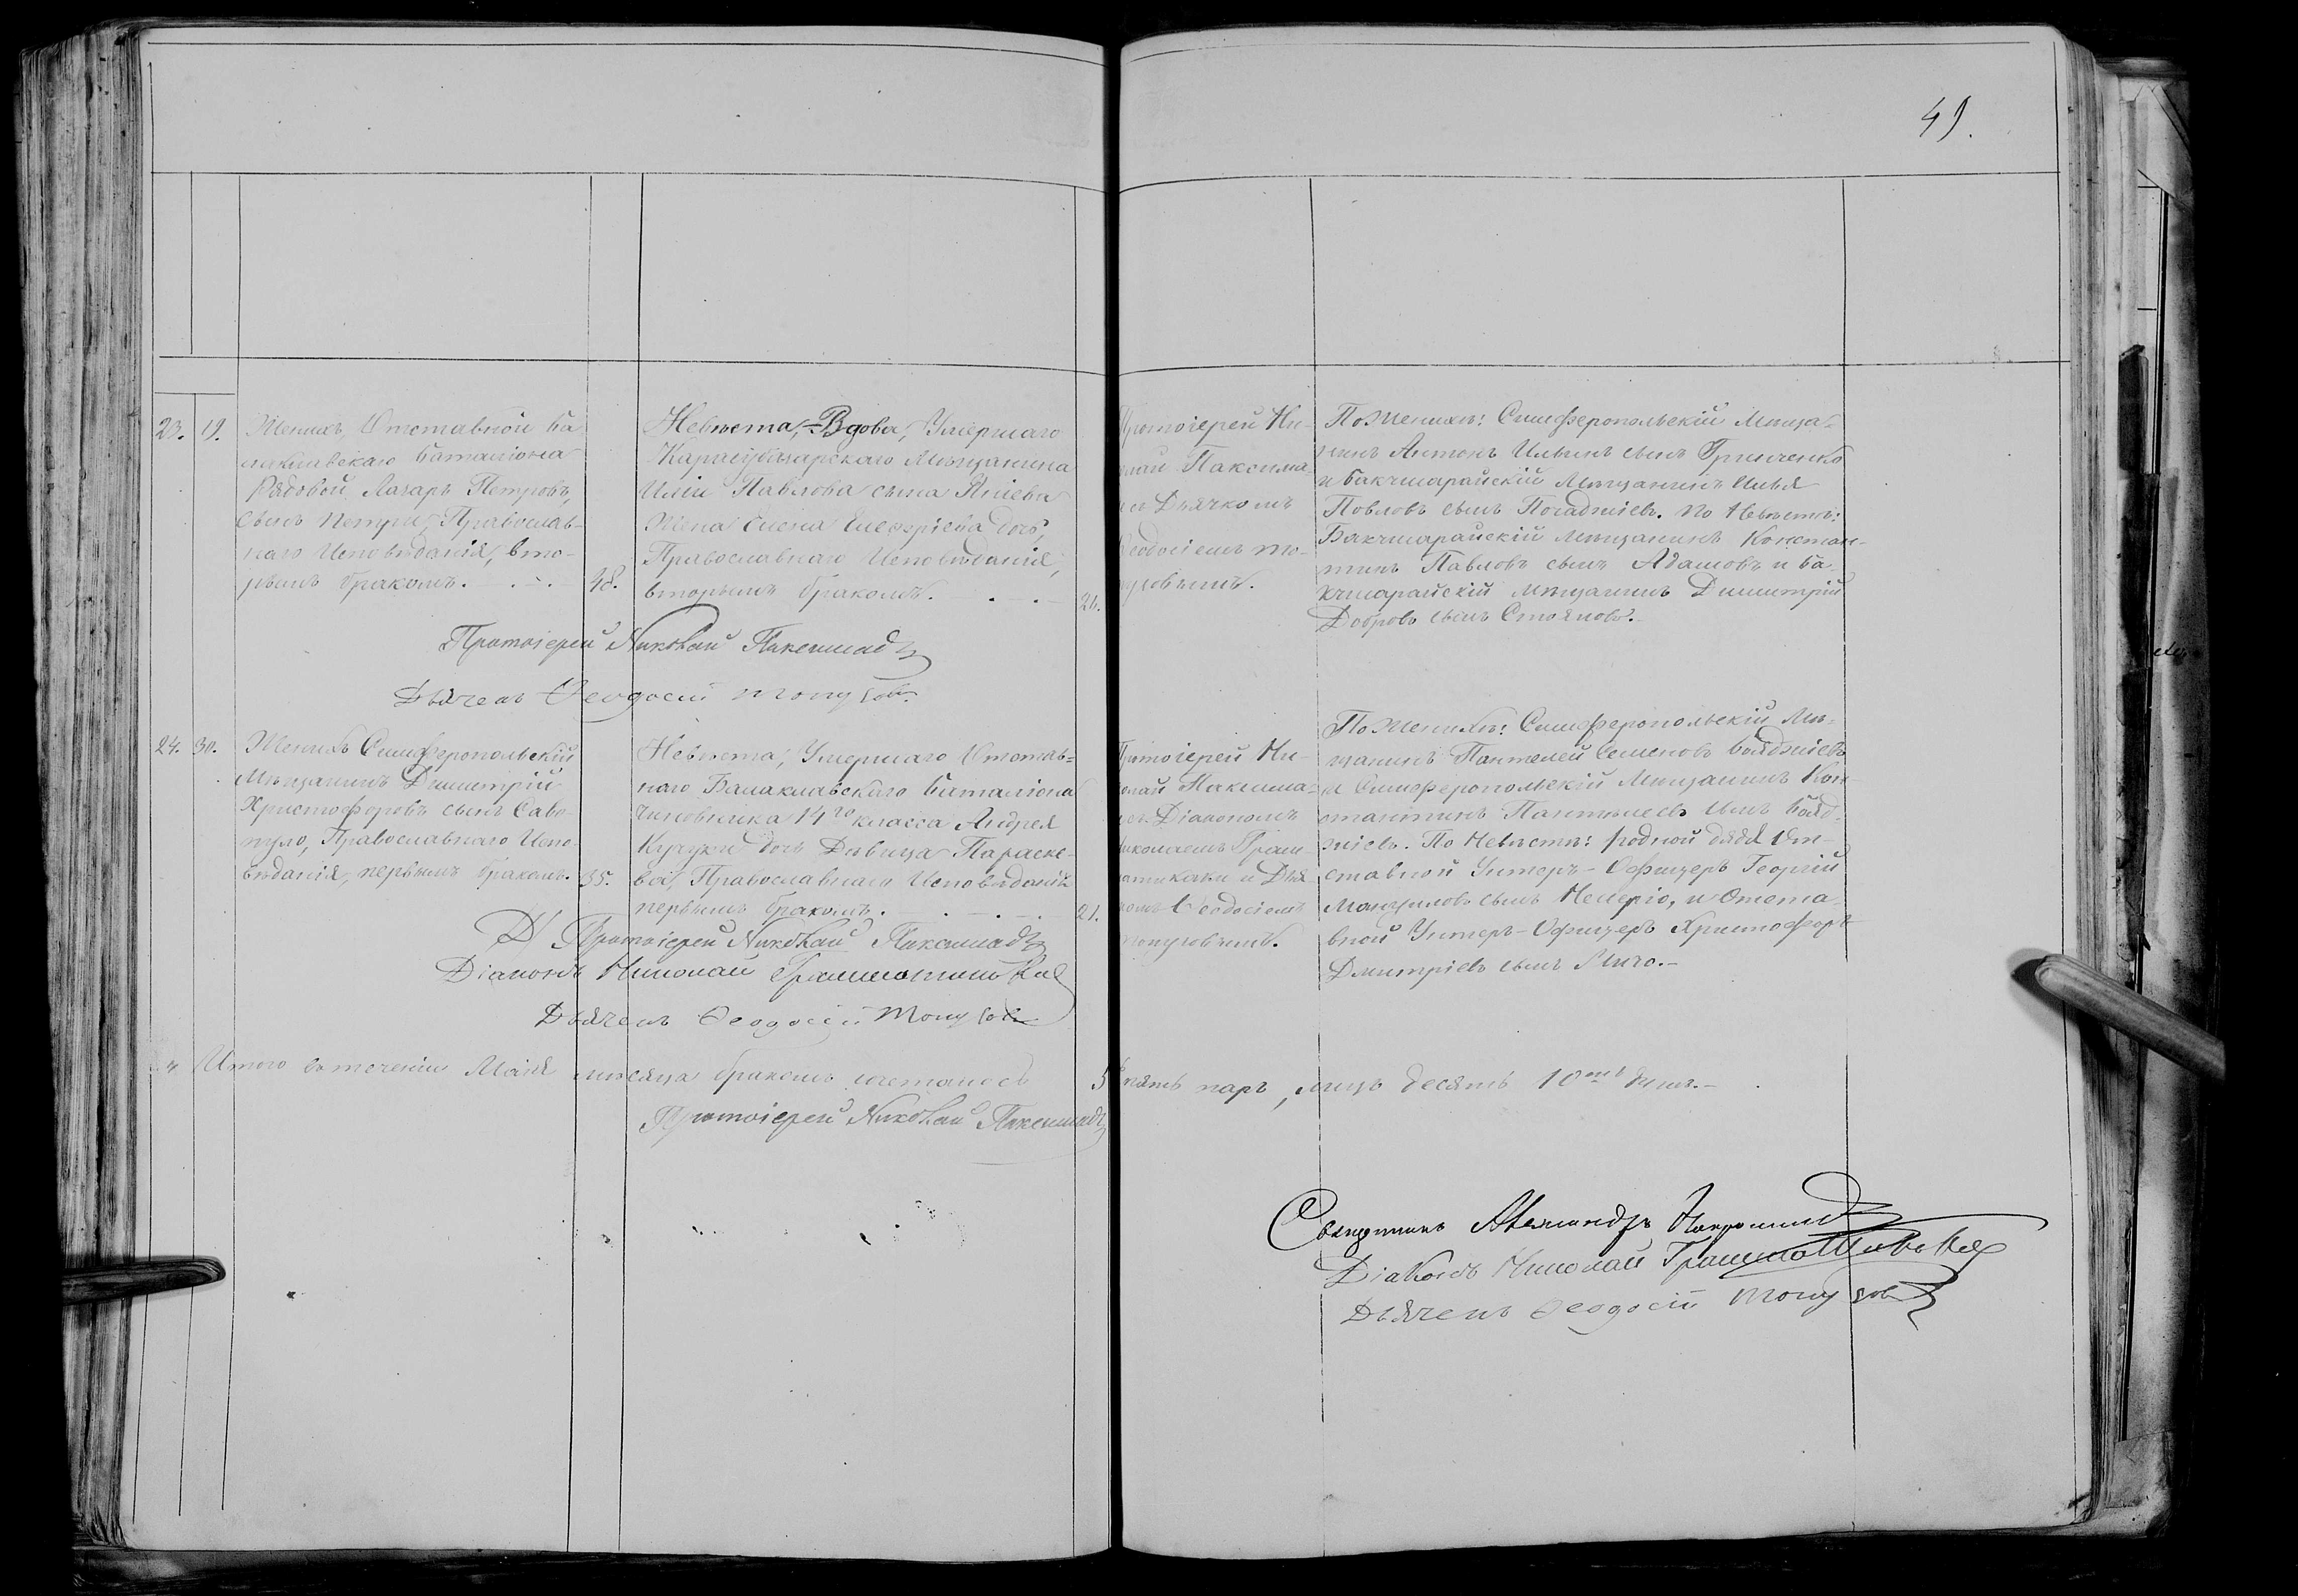 49.
23. 19.
Женихъ, Отставной Ба-
лаклавскаго Баталіона
Рядовой Лазарь Петровъ,
сынъ Петри, Православ-
наго Исповѣданія, вто-
рымъ бракомъ. 48.
Невѣста, Вдова, Умершаго
Карасубазарскаго Мѣщанина
Иліи Павлова сына
Жена Елена дочь,
Православнаго Исповѣданія,
вторымъ бракомъ.
Протоіерей Ни-
колай Паксима-
съ Дьячкомъ
Ѳеодосіемъ То-
Пожениху: Симферопольскій Мѣща-
нинъ Антонъ Ильинъ сынъ Гринченко
и Бакчисарайскій Мѣщанинъ Илья
Повловъ сынъ Погаджіевъ. По Невѣстѣ:
Бакчисарайскій мѣщанинъ Констан-
тинъ Павловъ сынъ Адамовъ и Ба-
кчисарайскій мѣщанинъ Димитрій
Добровъ сынъ Стояновъ.
Протоіерей Николай Паксимадъ
Дьячекъ Ѳеодосій
24. 30.
Женихъ Симферопольскій
Мѣщанинъ Димитрій
Христофоровъ сынъ Саво-
пуло, Православнаго Испо-
вѣданія, первымъ бракомъ. 35.
Невѣста, Умершаго Отстав-
наго Балаклавскаго Баталіона
Чиновника 14го класса Андрея
дочь Дѣвица Параске-
ва, Православнаго Исповѣданія
первымъ бракомъ. 21.
Протоіерей Ни-
колай Паксима-
съ Діакономъ
Николаемъ Грам-
матикаки и Дья-
комъ Ѳеодосіемъ
Пожениху: Симферопольскій Мѣ-
щанинъ Пантелей Семеновъ Бояджіевъ
и Симферопольскій Мѣщанинъ Кон-
стантинъ Пантелеевъ сынъ Бояд-
жіевъ. По Невѣстѣ: родной дядя От-
ставной Унтеръ-Офицеръ Георгій
сынъ и Отста-
вной Унтеръ-Офицеръ Христофоръ
Дмитріевъ сынъ
Протоіерей Николай Паксимадъ
Діаконъ Николай
Дьячекъ Ѳеодосій
Итого въ теченіи Маія мѣсяца бракомъ сочеталось 5 пять паръ, лицъ десять 10
Протоіерей Николай Паксимадъ
Священникъ Александръ
Діаконъ Николай
Дьячекъ Ѳеодосій